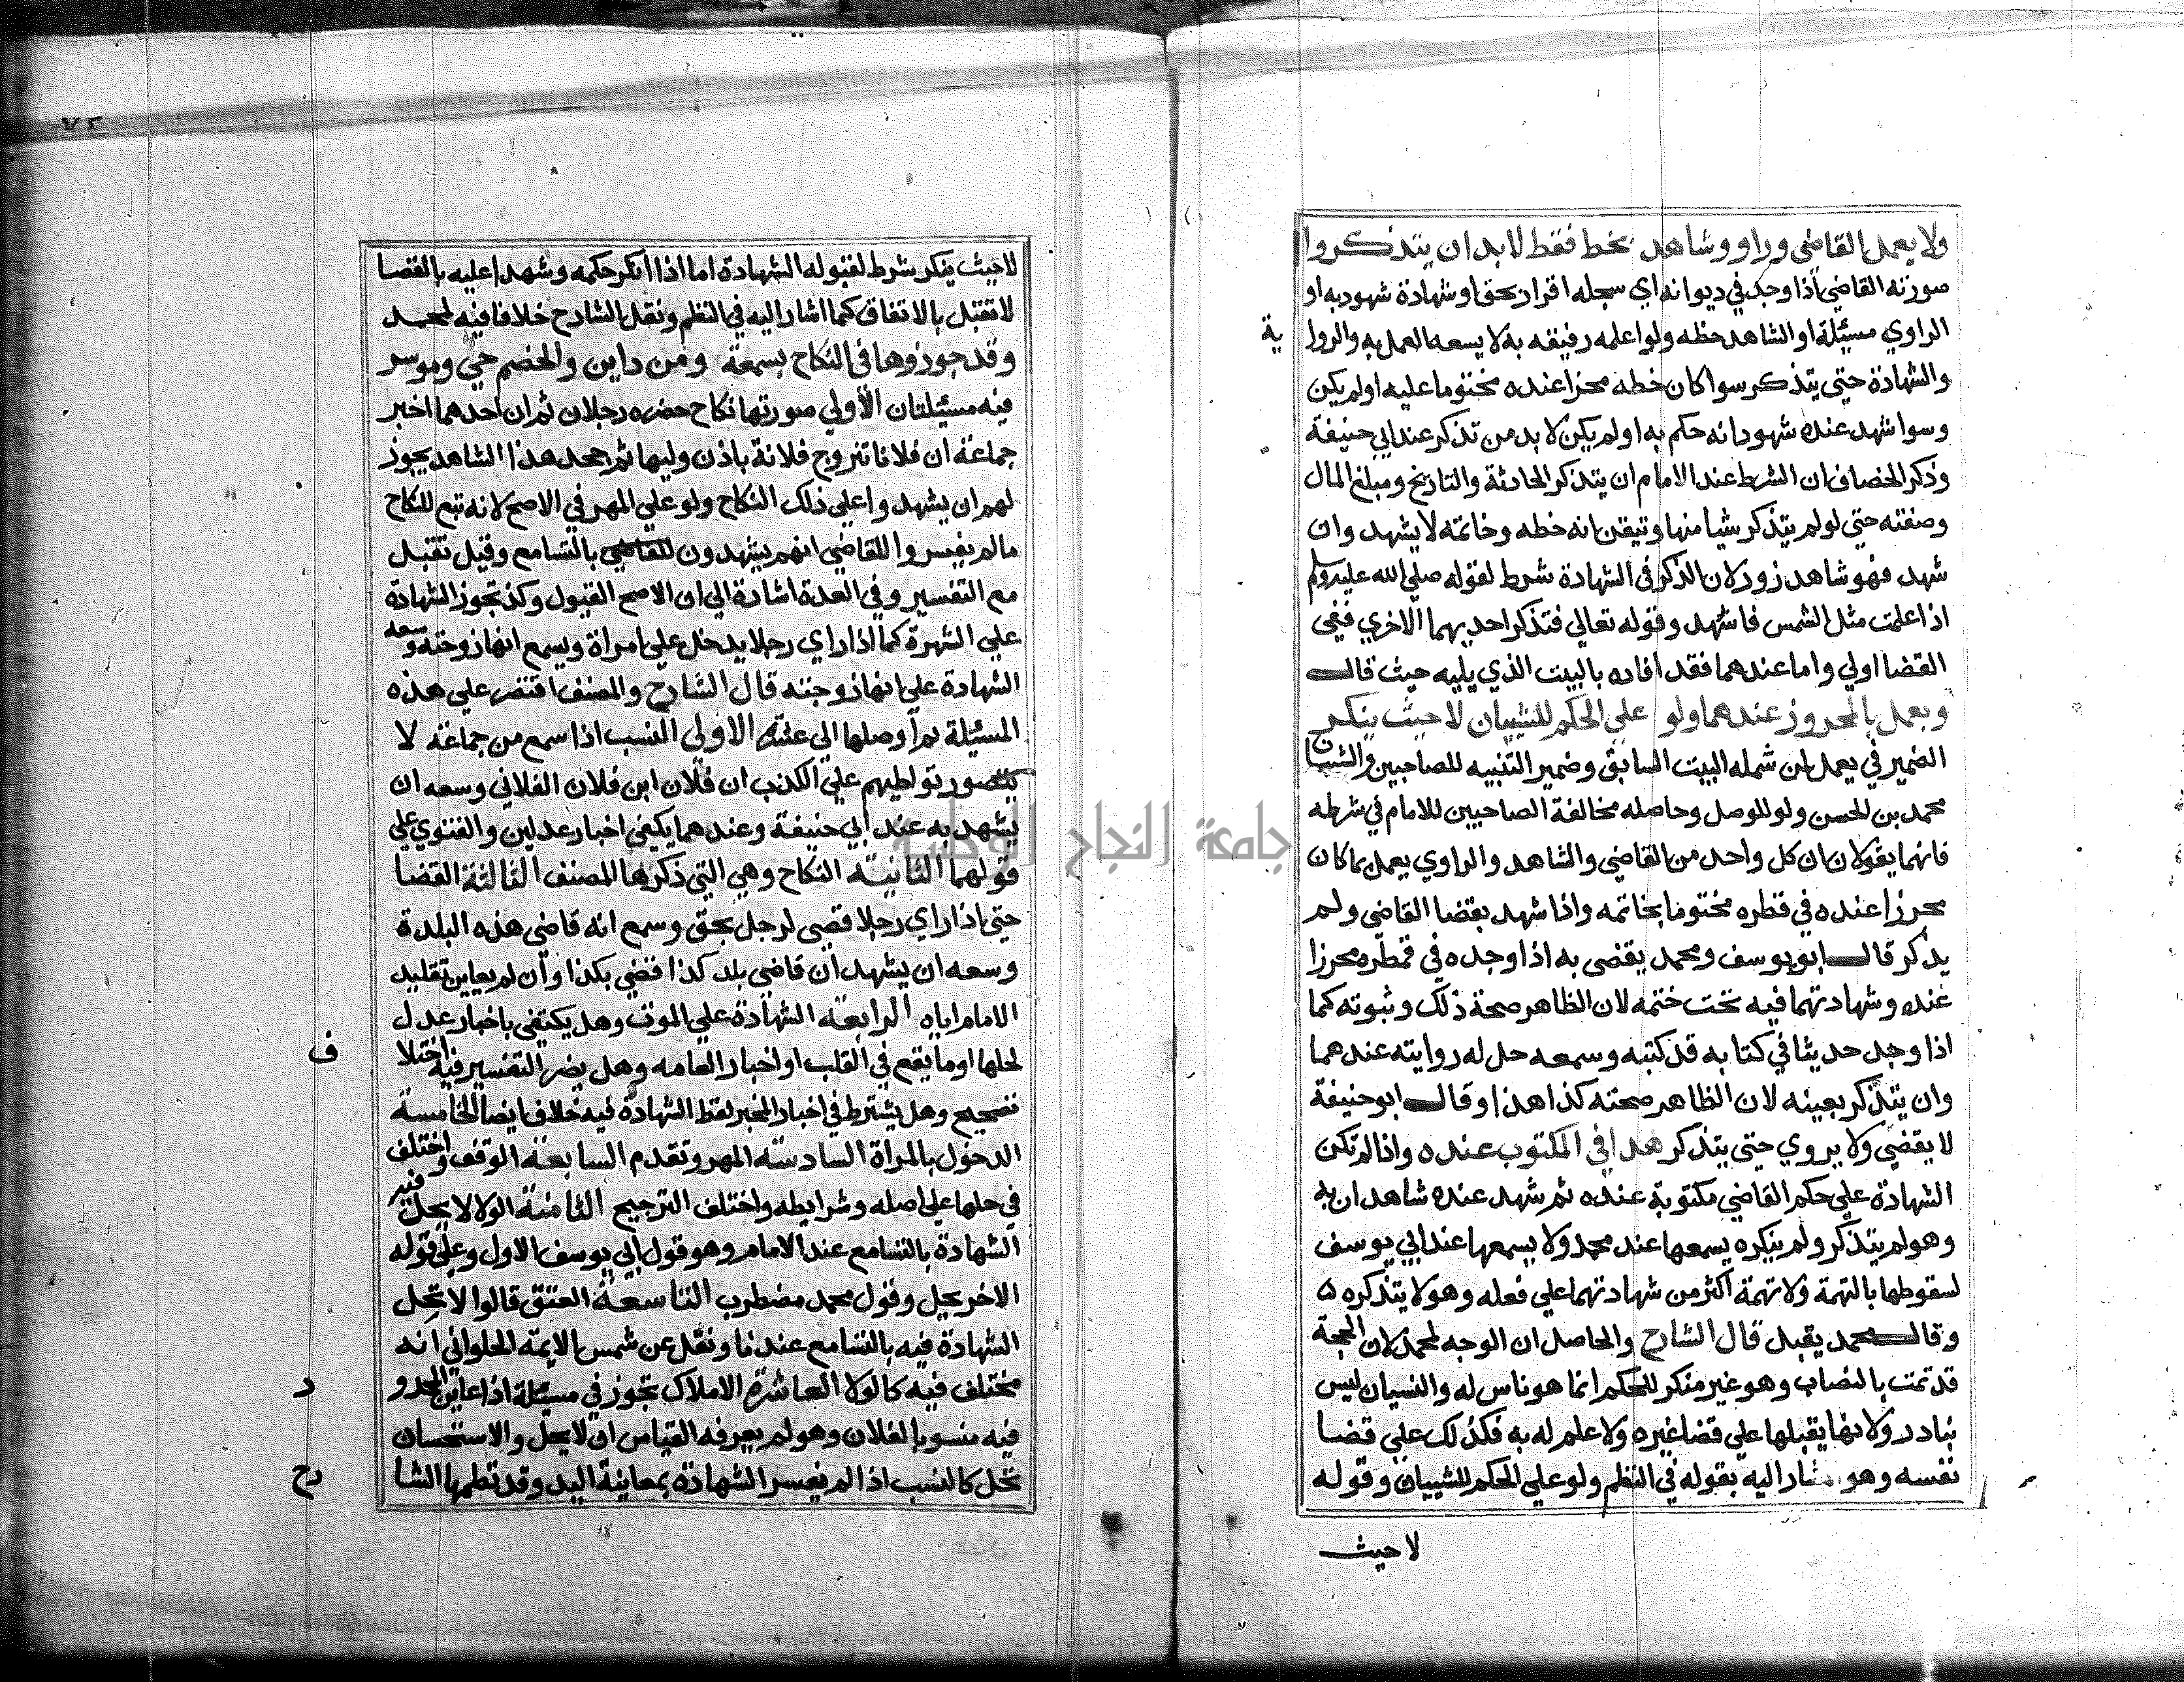 ولا يعمل القاضي وراو وشاهد بخط فقط لا بد ان يتذكروا
صورته القاضي اذا وجد في ديوانه اي سجله اقرار بحق او شهادة شهود به او
الراوي مسئلة او الشاهد خطه ولو اعلمه رفيقه به لا يسعه العمل به والروا
ية
والشهادة حتى يتذكر سوا كان خطه محرزا عنده مختوما عليه او لم يكن
وسوا شهد عنده شهود انه حكم به او لم يكن لا بد من تذكر عند ابي حنيفة
وذكر الخصاف ان الشرط عند الامام ان يتذكر الحادثة والتاريخ ومبلغ المال
وصفته حتى لو لم يتذكر شيا منها وتيقن انه خطه وخاتمه لا يشهد وان
شهد فهو شاهد زور لان الذكر في الشهادة شرط لقوله صلى الله عليه وسلم
اذا علمت مثل الشمس فاشهد وقوله تعالى فتذكر احديهما الاخري ففي
القضا اولي واما عندهما فقد افاده بالبيت الذي يليه حيث قال
ويعمل بالمحروز عندهما ولو علي الحكم للشيبان لا حيث ينكر
الضمير في يعمل لمن شمله البيت السابق وضمير التثنيه للصاحبين والشيبان
محمد بن الحسن ولو للوصل وحاصله مخالفة الصاحبين للامام في شرطه
فانهما يقولان ان كل واحد من القاضي والشاهد والراوي يعمل بما كان
محرزا عنده في قطره مختوما بخاتمه واذا شهد بقضا القاضي ولم
يذكر قال ابو يوسف ومحمد يقضي به اذا وجده في قمطره محرزا
عنده وشهادتهما فيه تحت ختمه لان الظاهر صحة ذلك وثبوته كما
اذا وجد حديثا في كتابه قد كتبه وسمعه حل له روايته عندهما
وان يتذكر بعينه لان الظاهر صحته كذا هذا وقال ابو حنيفة
لا يقضي ولا يروي حتى يتذكر هذا في المكتوب عنده واذا لم تكن
الشهادة علي حكم القاضي مكتوبة عنده ثم شهد عنده شاهدان به
وهو لم يتذكر ولم ينكره يسمعها عند محمد ولا يسمعها عند ابي يوسف
لسقوطها بالتهمة ولا تهمة اكثر من شهادتهما علي فعله وهو لا يتذكره
وقال محمد يقبل قال الشارح والحاصل ان الوجه لمحمد لان الحجة
قد تمت بالنصاب وهو غير منكر للحكم انما هو ناس له والنسيان ليس
بنادر ولانها يقبلها علي قضا غيره ولا علم له به فكذلك علي قضا
نفسه وهو شار اليه بقوله في النظم ولو علي الحكم للشيبان وقوله
لا حيث
لا حيث ينكر شرط لقبوله الشهادة اما اذا انكر حكمه وشهدا عليه بالقضا
لا تقبل بالاتفاق كما اشار اليه في النظم ونقل الشارح خلافا فيه لمحمد
وقد جوزوها في النكاح بسمعة ومن داين والخصم حي وموسر
فيه مسئلتان الاولي صورتها نكاح حضره رجلان ثم ان احدهما اخبر
جماعة ان فلانا تزوج فلانة باذن وليها ثم جحد هذا الشاهد يجوز
لهم ان يشهدوا علي ذلك النكاح ولو علي المهر في الاصح لانه تبع للنكاح
ما لم يفسروا للقاضي انهم يشهدون للقاضي بالتسامع وقيل تقبل
مع التفسير وفي العدة اشارة الي ان الاصح القبول وكذ تجوز الشهادة
علي الشهرة كما اذا راي رجلا يدخل علي امراة ويسمع انها زوجته وسعه
الشهادة علي انها زوجته قال الشارح والمصنف اقتصر علي هذه
المسئلة ثم اوصلها الي عشرة الاولي النسب اذا سمع من جماعة لا
يتصور تواطيهم علي الكذب ان فلان ابن فلان الفلاني وسعه ان
يشهد به عند ابي حنيفة وعندهما يكفي اخبار عدلين والفتوي علي
قولهما الثانية النكاح وهي التي ذكرها المصنف الثالثة القضا
حتى اذا راي رجلا قضي لرجل بحق وسمع انه قاضي هذه البلدة
وسعه ان يشهد ان قاضي بلد كذا قضي بكذا وان لم يعاين تقليد
الامام اياه الرابعة الشهادة علي الموت وهل يكتفي باخبار عدل
لحلها او ما يقع في القلب او اخبار العامه وهل يضر التفسير فيه اختلا
ف
تصحيح وهل يشترط في اخبار المخبر لفظ الشهادة فيه خلاف ايضا الخامسة
الدخول بالمراة السادسة المهر وتقدم السابعة الوقف واختلف
في حلها علي اصله وشرايطه واختلف الترجيح فيه الثامنة الولا لا يحل
الشهادة بالتسامع عند الامام وهو قول ابي يوسف الاول وعلي قوله
الاخر يحل وقول محمد مضطرب التاسعة العتق قالوا لا تحل
الشهادة فيه بالتسامع عندنا ونقل عن شمس الايمة الحلواني انه
مختلف فيه كالولا العاشرة الاملاك تجوز في مسئلة اذا عاين الحدو
د
فيه منسوبا لفلان وهو لم يعرفه القياس ان لا يحل والاستحسان
تحل كالنسب اذا لم يفسر الشهادة بمعاينة اليد وقد نظمها الشا
رح
جامعة النجاح الوطنية